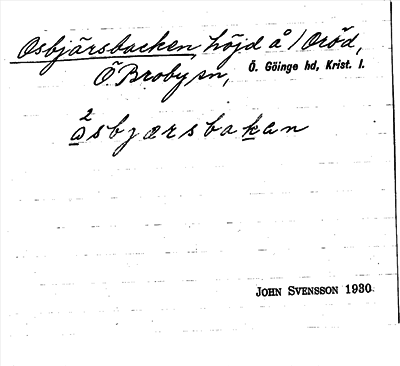 Osbjärsbacken, höjd å / Oröd,
Ö Broby sn, Ö. Göinge hd, Krist. l.
2
a s b j æ r s b a k a n
JOHN SVENSSON 1930.